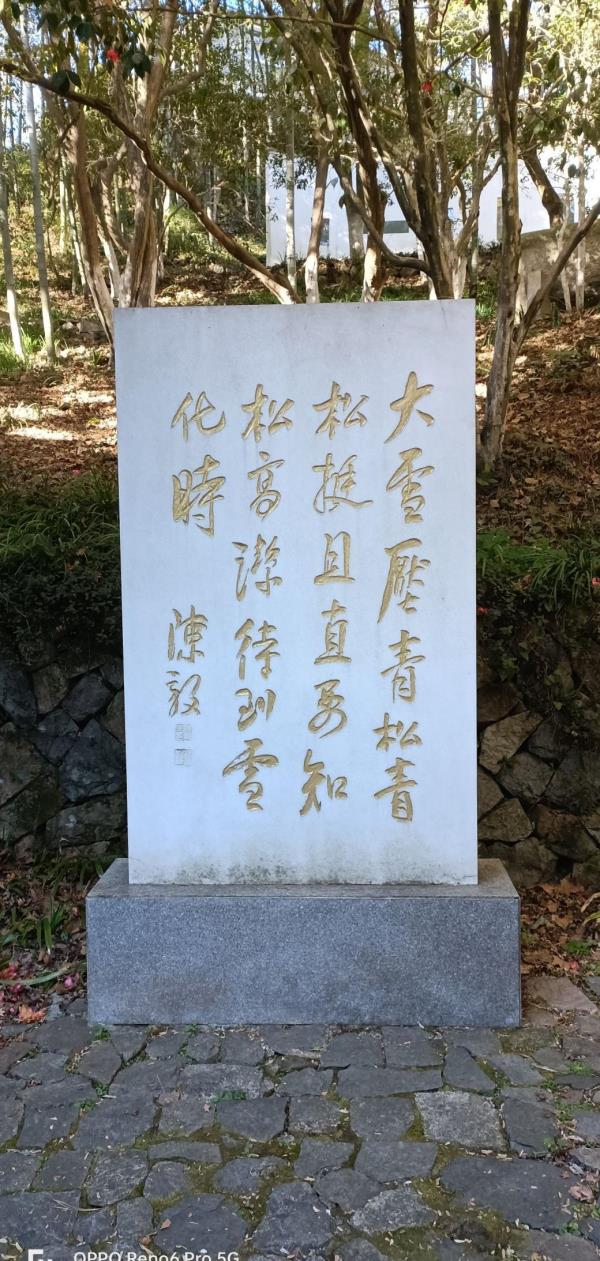 大雪壓青松青
松挺且直要知
松高潔待到雪
化時
陳毅
OPPO Reno6 Pro 5G